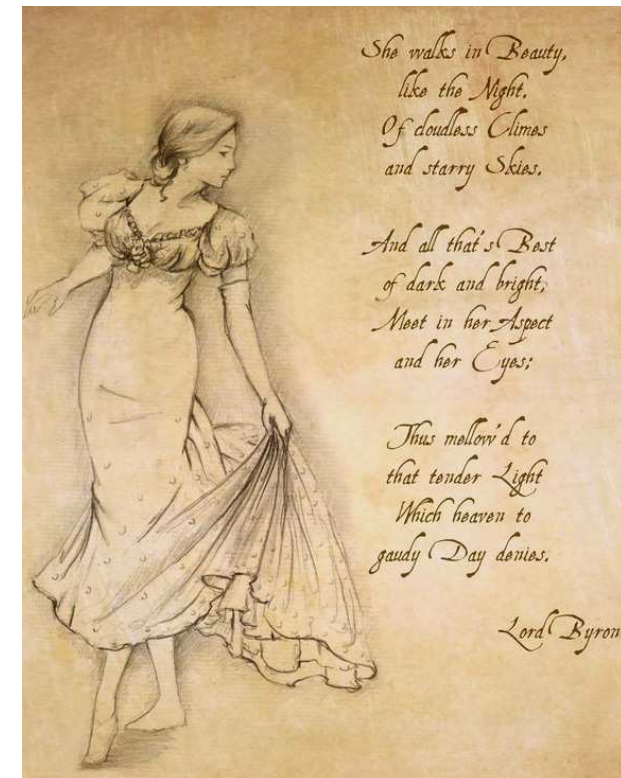 She walks in Beauty,
like the Night.
Of cloudless Climes
and starry Skies.
And all that's Best
of dark and bright,
Meet in her Aspect
and her Eyes;
Thus mellow'd to
that tender Light
Which heaven to
gaudy Day denies.
Lord Byron